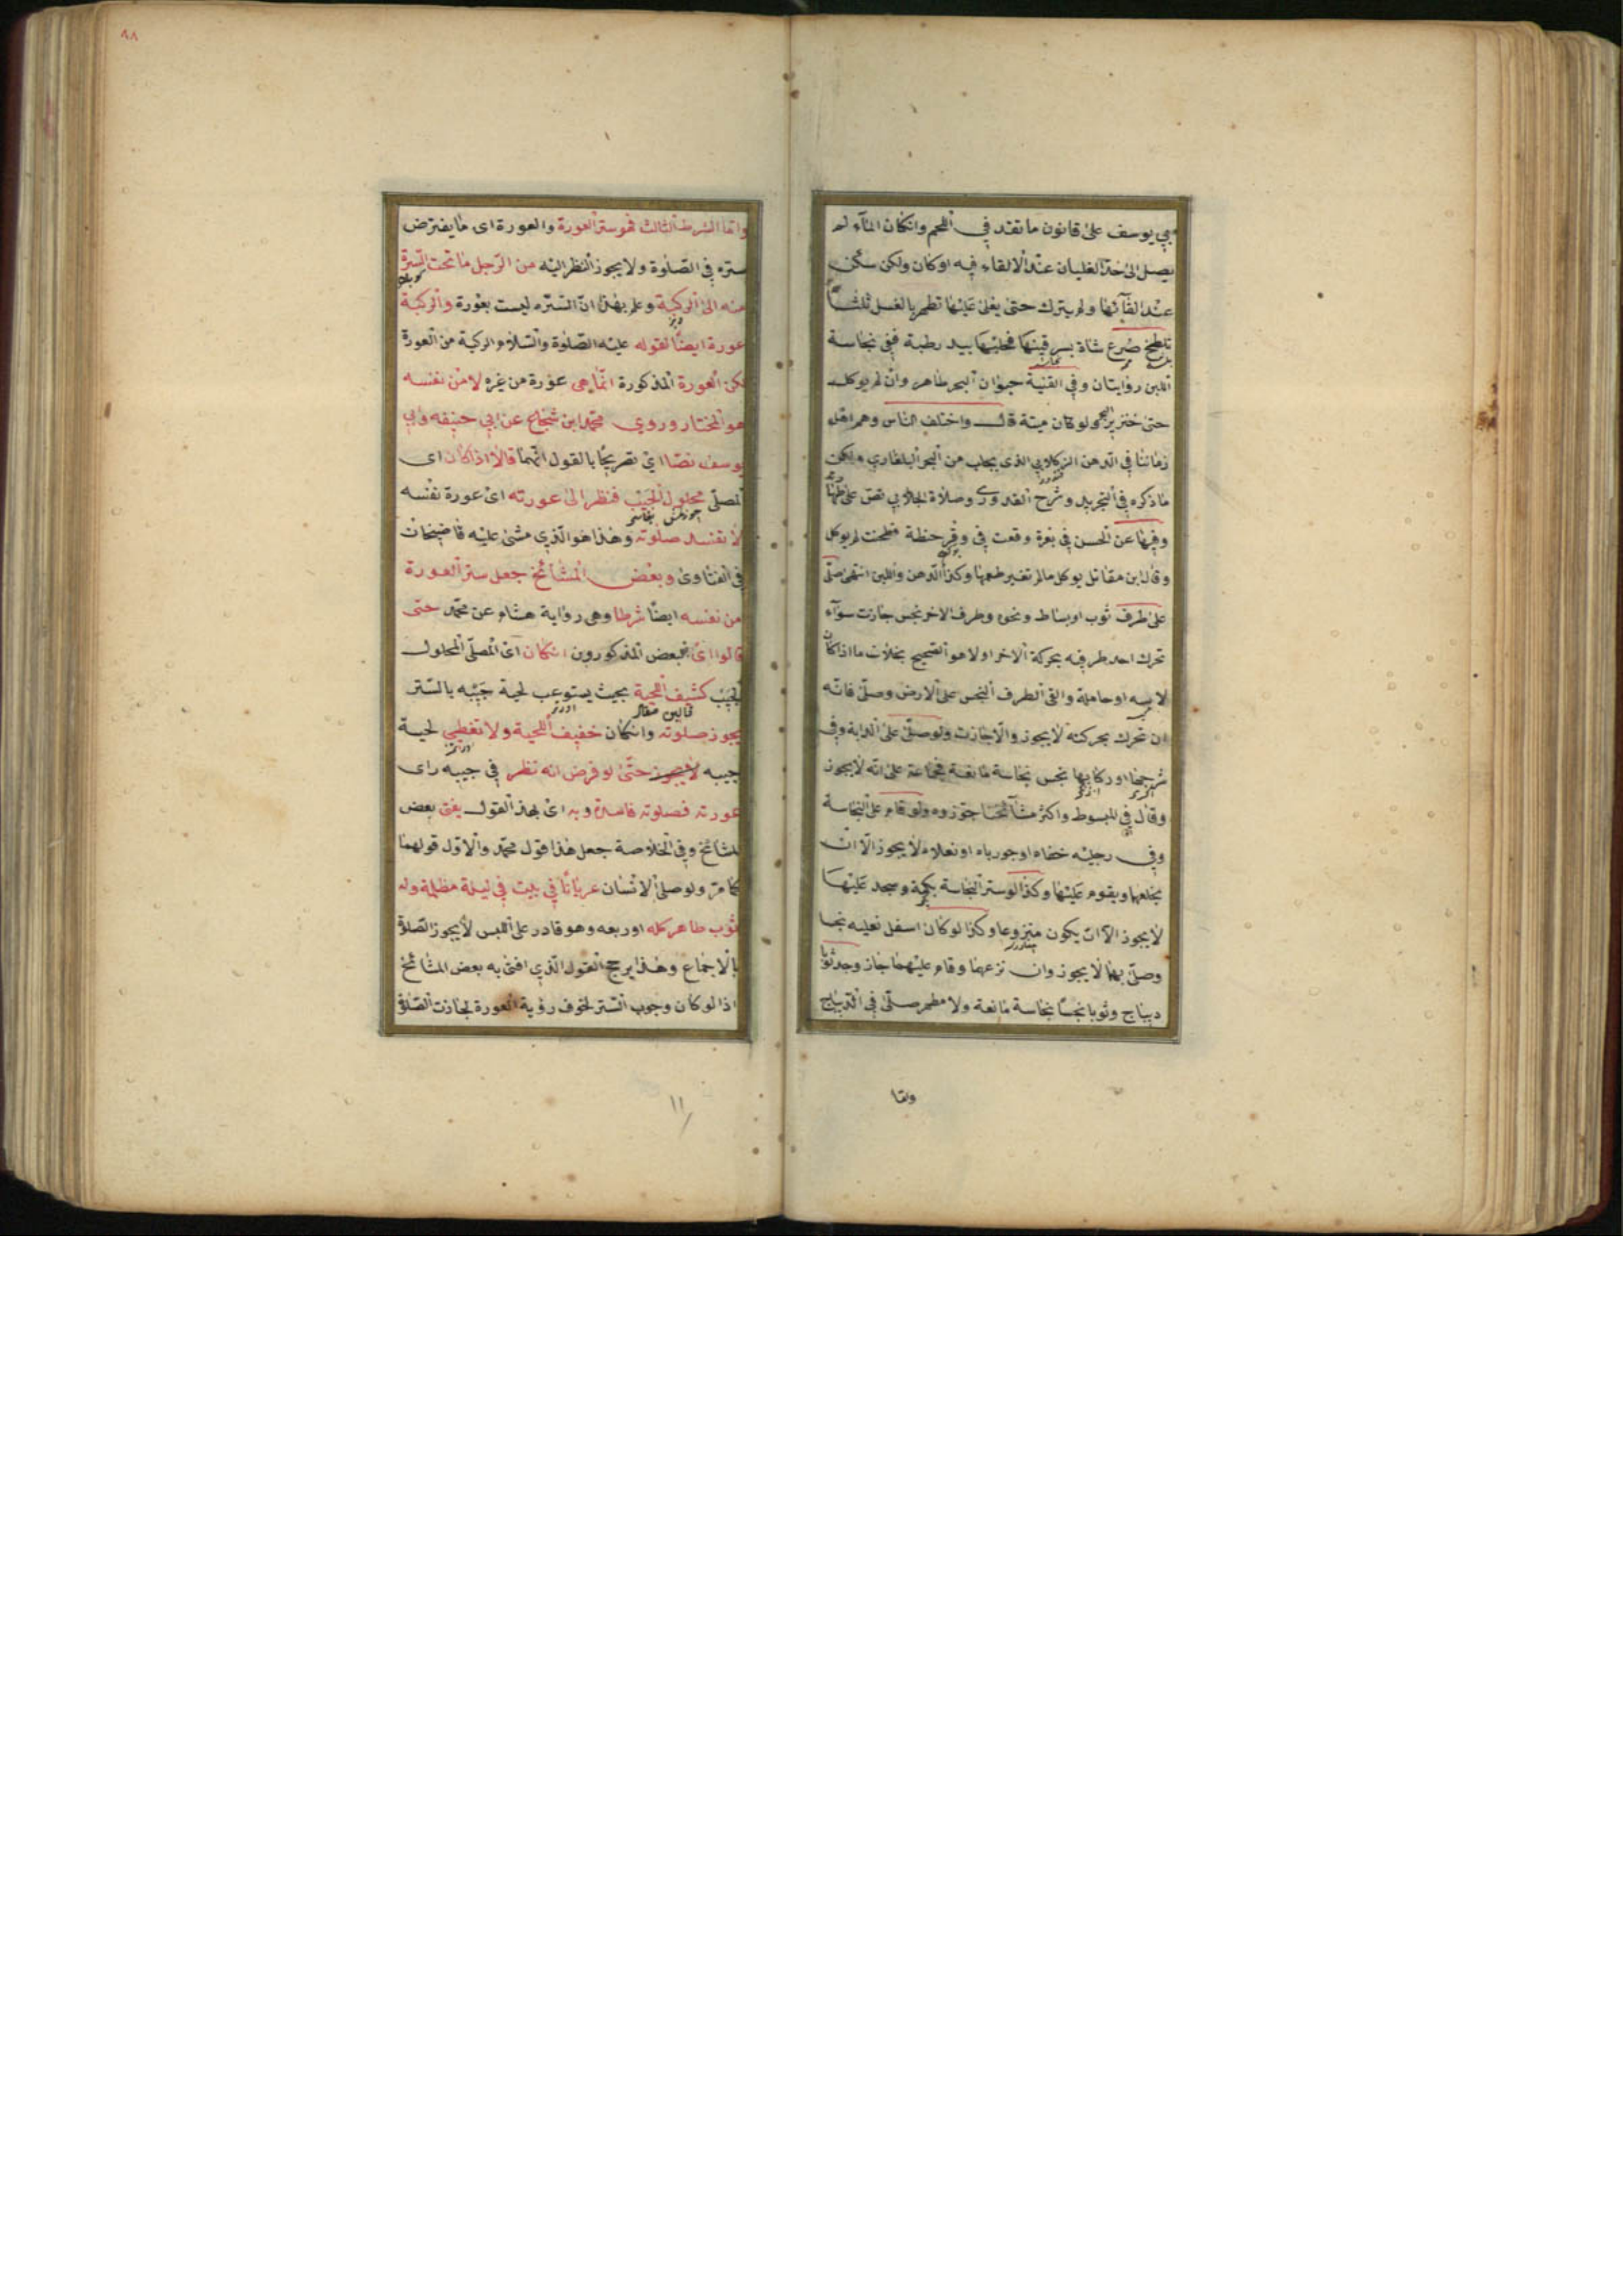 ابي يوسف على قانون ما تقدم في اللحم وان كان الماء لم
يصل الى حد الغليان عند الالقاء فيه او كان ولكن سكن
عند القائها ولم يترك حتى يغلى عليها تطهر بالغسل ثلثا
تلطخ ضرع شاة بسرقينها فحلبها بيد رطبة ففي نجاسة
اللبن روايتان وفي القنية حيوان البحر طاهر وان لم يوكل
حتى خنزير البحر ولو كان ميتة قال واختلف الناس وهم اهل
زماننا في الدهن الزكلابي الذي يجلب من البحر البلغاري ولكن
ما ذكره في التجريد وشرح القدوري وصلاة الجلابي نص على طهارته
وفيها عن الحسن في بعرة وقعت في وقر حنطة فطحنت لم يوكل
وقال ابن مقاتل يوكل مالم تغير طعمها وكذا الدهن واللبن انتهى صلى
على طرف ثوب او بساط ونحوه وطرف الاخر نجس جازت سوآء
تحرك احد طرفيه بحركة الاخر اولا هو الصحيح بخلاف ما اذا كان
لابسه او حامله والقى الطرف النجس على الارض وصلى فانه
ان تحرك بحركته لا يجوز والا جازت ولو صلى على الدابة وفي
سرجها او ركابيها نجس نجاسة مانعة فجماعة على انه لا يجوز
وقال في المبسوط واكثر مشآئخنا جوزوه ولو قام على النجاسة
وفي رجليه خفاه او جورباه او نعلاه لا يجوز الا ان
يخلعها ويقوم عليها وكذا لو ستر النجاسة بكمه وسجد عليها
لا يجوز الا ان يكون منزوعا وكذا لو كان اسفل نعليه نجسا
وصلى بهما لا يجوز وان نزعهما وقام عليهما جاز وجد ثوبا
ديباج وثوبا نجسا نجاسة مانعة ولا مطهر صلى في الديباج
واما
٨٨
واما الشرط الثالث فهو ستر العورة والعورة اى ما يفترض
ستره في الصلوة ولا يجوز النظر اليه من الرجل ما تحت السرة
منه الى الركبة وعلم بهذا ان السره ليست بعورة والركبة
عورة ايضا لقوله عليه الصلوة والسلام الركبة من العورة
لكن العورة المذكورة انما هي عورة من غيره لا من نفسه
هو المختار وروي محمد ابن شجاع عن ابي حنيفه وابي
يوسف نصا اي تصريحا بالقول انهما قالا اذا كان اى
المصلي محلول الجيب فنظر الى عورته اى عورة نفسه
لا تفسد صلوته وهذا هو الذي مشى عليه قاضيخان
في الفتاوى وبعض المشائخ جعل ستر العورة
من نفسه ايضا شرطا وهى رواية هشام عن محمد حتى
قالوا اى البعض المذكورون ان كان اى المصلي المحلول
الجيب كثيف اللحية بحيث يستوعب لحية جيبه بالستر
يجوز صلوته وان كان خفيف اللحية ولا تغطي لحية
جيبه لا يجوز حتى لو فرض انه نظر في جيبه راى
عورته فصلوته فاسدة وبه اى بهذ القول يفتى بعض
المشائخ وفي الخلاصة جعل هذا قول محمد والاول قولهما
كما مر ولو صلى الانسان عريانا في بيت في ليلة مظلمة وله
ثوب طاهر كله او ربعه وهو قادر على اللبس لا يجوز الصلاة
بالاجماع وهذا يرجح القول الذي افتى به بعض المشائخ
اذ لو كان وجوب الستر لخوف رؤية العورة لجازت الصلاة
١١